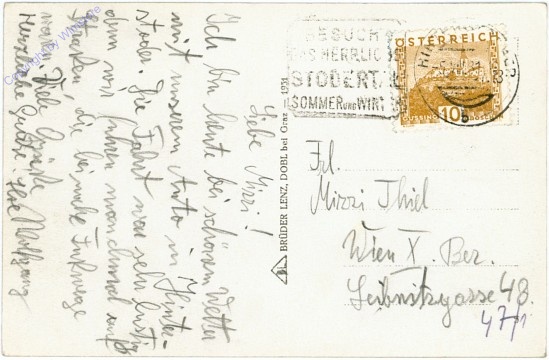 Liebe Mizzi!
Ich bin heute bei schönem Wetter
mit unserem Auto in Hinter-
stoder. Die Fahrt war sehr lustig
denn wir fuhren manchmal auf
Straßen die beinahe Fußwege
waren. Viele Grüße
Herzliche Grüße Wolfgang
BRÜDER LENZ, DOBL bei Graz 1931
BESUCH
DAS HERRLIC
STODERTAL
SOMMER UND WINT
ÖSTERREICH
10
GÜSSING
Frl.
Mizzi Thiel
Wien X. Bez.
Leibnitzgasse 48.
47/1
Copyright by